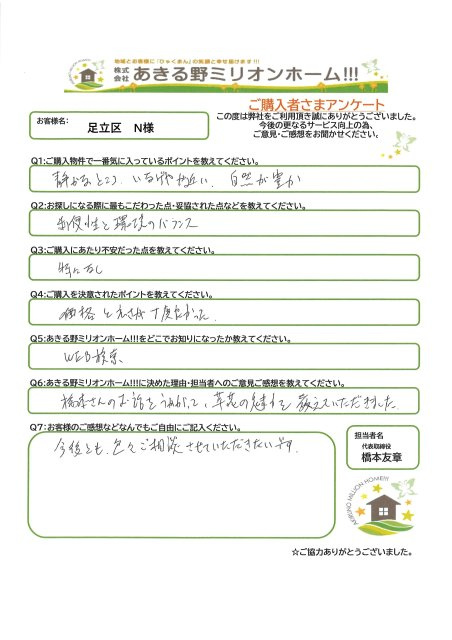 地域とお客様に「ひゃくまん」の笑顔と幸せ届けます!!!
株式会社 あきる野ミリオンホーム!!!
ご購入者さまアンケート
この度は弊社をご利用頂き誠にありがとうございました。
今後の更なるサービス向上の為、
ご意見・ご感想をお聞かせください。
お客様名:
足立区 N様
Q1:ご購入物件で一番気に入っているポイントを教えてください。
静かなところ、いなげやが近い、自然が豊か
Q2:お探しになる際に最もこだわった点・妥協された点などを教えてください。
利便性と環境のバランス
Q3:ご購入にあたり不安だった点を教えてください。
特になし
Q4:ご購入を決意されたポイントを教えてください。
価格と広さが丁度よかった
Q5:あきる野ミリオンホーム!!!をどこでお知りになったか教えてください。
WEB検索
Q6:あきる野ミリオンホーム!!!に決めた理由・担当者へのご意見ご感想を教えてください。
橋本さんのお話をうかがって、草花の
教えていただきました。
Q7:お客様のご感想などなんでもご自由にご記入ください。
今後とも、色々ご相談させていただきたいです。
担当者名
代表取締役
橋本友章
AKIRUNO MILLION HOME!!!
☆ご協力ありがとうございました。